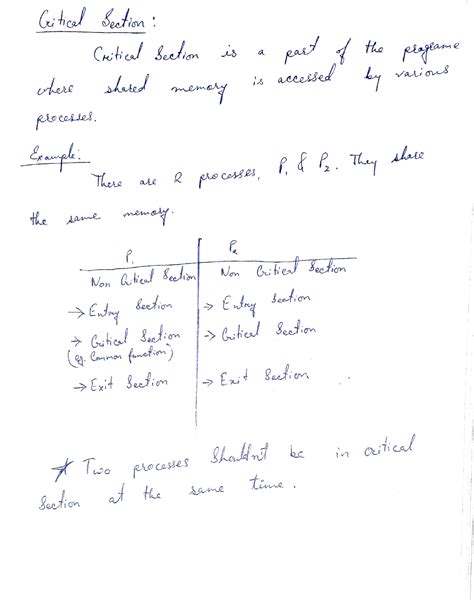 Critical Section :
Critical Section is a part of the programe
where shared memory is accessed by various
processes.
Example:
There are 2 processes, P1 & P2. They share
the same memory.
P1 P2
Non Critical Section Non Critical Section
→ Entry Section → Entry Section
→ Critical Section → Critical Section
(eg. Common function)
→ Exit Section → Exit Section
* Two processes Shouldn't be in critical
Section at the same time.